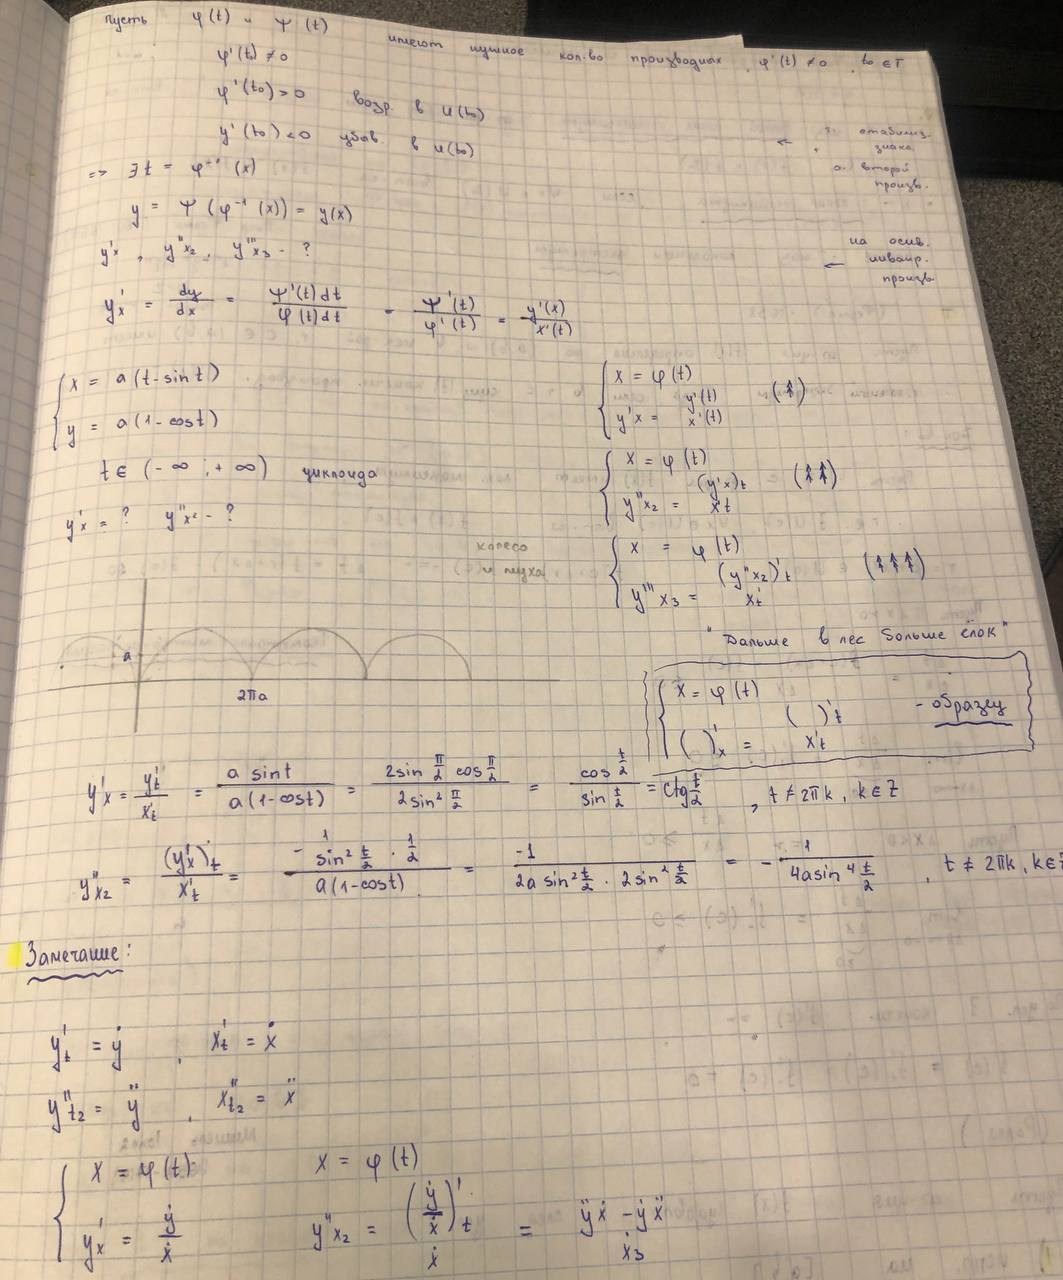 Пусть φ(t) и ψ(t) имеют нужное кол-во производных, φ'(t) ≠ 0, t₀ ∈ T
φ'(t₀) ≠ 0
φ'(t₀) > 0 возр. в U(t₀)
y'(t₀) < 0 убыв. в U(t₀)
← т. стабилиз.
знака
о. второй
произв.
=> ∃ t = φ⁻¹(x)
y = ψ(φ⁻¹(x)) = y(x)
y'x, y''x2, y'''x3 - ?
← на
произв.
y'x = dy/dx = ψ'(t)dt / φ(t)dt = ψ'(t)/φ'(t) = y'(x)/x'(t)
{ x = a(t - sin t)
y = a(1 - cos t)
t ∈ (-∞ ; +∞) циклоида
y'x = ? y''x² - ?
{ x = φ(t)
y'x = y'(t) / x'(t) (↑)
{ x = φ(t)
y''x2 = (y'x)t / x't (↑↑)
{ x = φ(t)
y'''x3 = (y''x2)'t / x't (↑↑↑)
колесо
и муха
a
2πa
"Дальше в лес больше ёлок"
{ x = φ(t)
( )'x = ( )'t / x't - образец
y'x = y't / x't = a sin t / a(1 - cos t) = 2 sin π/2 cos π/2 / 2 sin² π/2 = cos t/2 / sin t/2 = ctg t/2, t ≠ 2πk, k ∈ Z
y''x2 = (y'x)'t / x't = - 1/sin² t/2 · 1/2 / a(1 - cos t) = -1 / 2a sin² t/2 · 2 sin² t/2 = - 1 / 4a sin⁴ t/2, t ≠ 2πk, k ∈ Z
Замечание:
y't = ẏ, x't = ẋ
y''t2 = ÿ, x''t2 = ẍ
{ x = φ(t) x = φ(t)
y'x = ẏ/ẋ y''x2 = (ẏ/ẋ)'t / ẋ = ÿẋ - ẏẍ / ẋ3